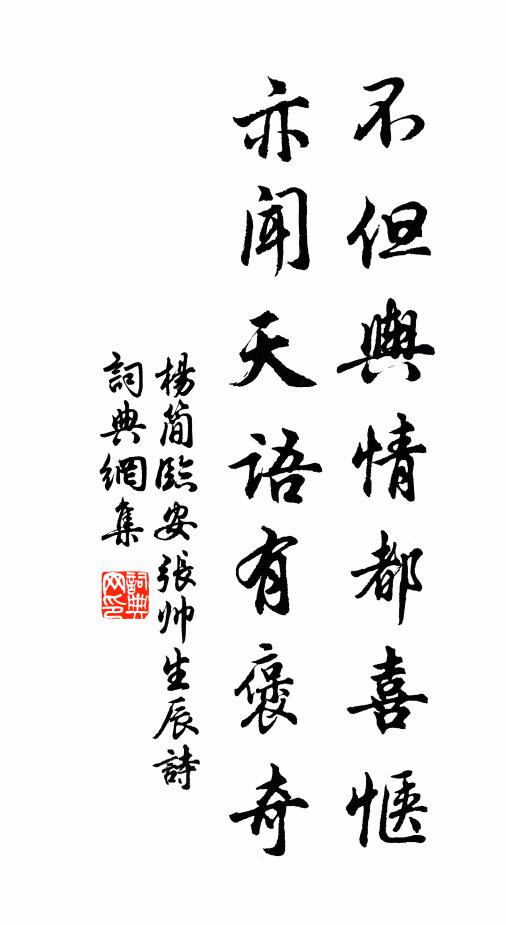 不但輿情都喜愜
亦聞天語有褒奇
楊简臨安張帅生辰詩
詞典網集
詞典网印